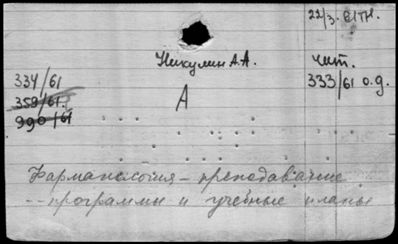 22/3.
Никулин А.А.
Чит.
334/61
333/61 о.д.
359/61.
А
990/61
Фармакология – преподавание
-- программы и учебные планы